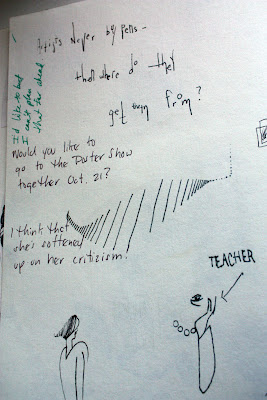 Artists Never buy pens –
then where do they
get them from?
I'd like to but
I can't plan
that far
Would you like to
go to the Poster Show
together Oct. 21?
I think that
she's softened
up on her critizism.
TEACHER